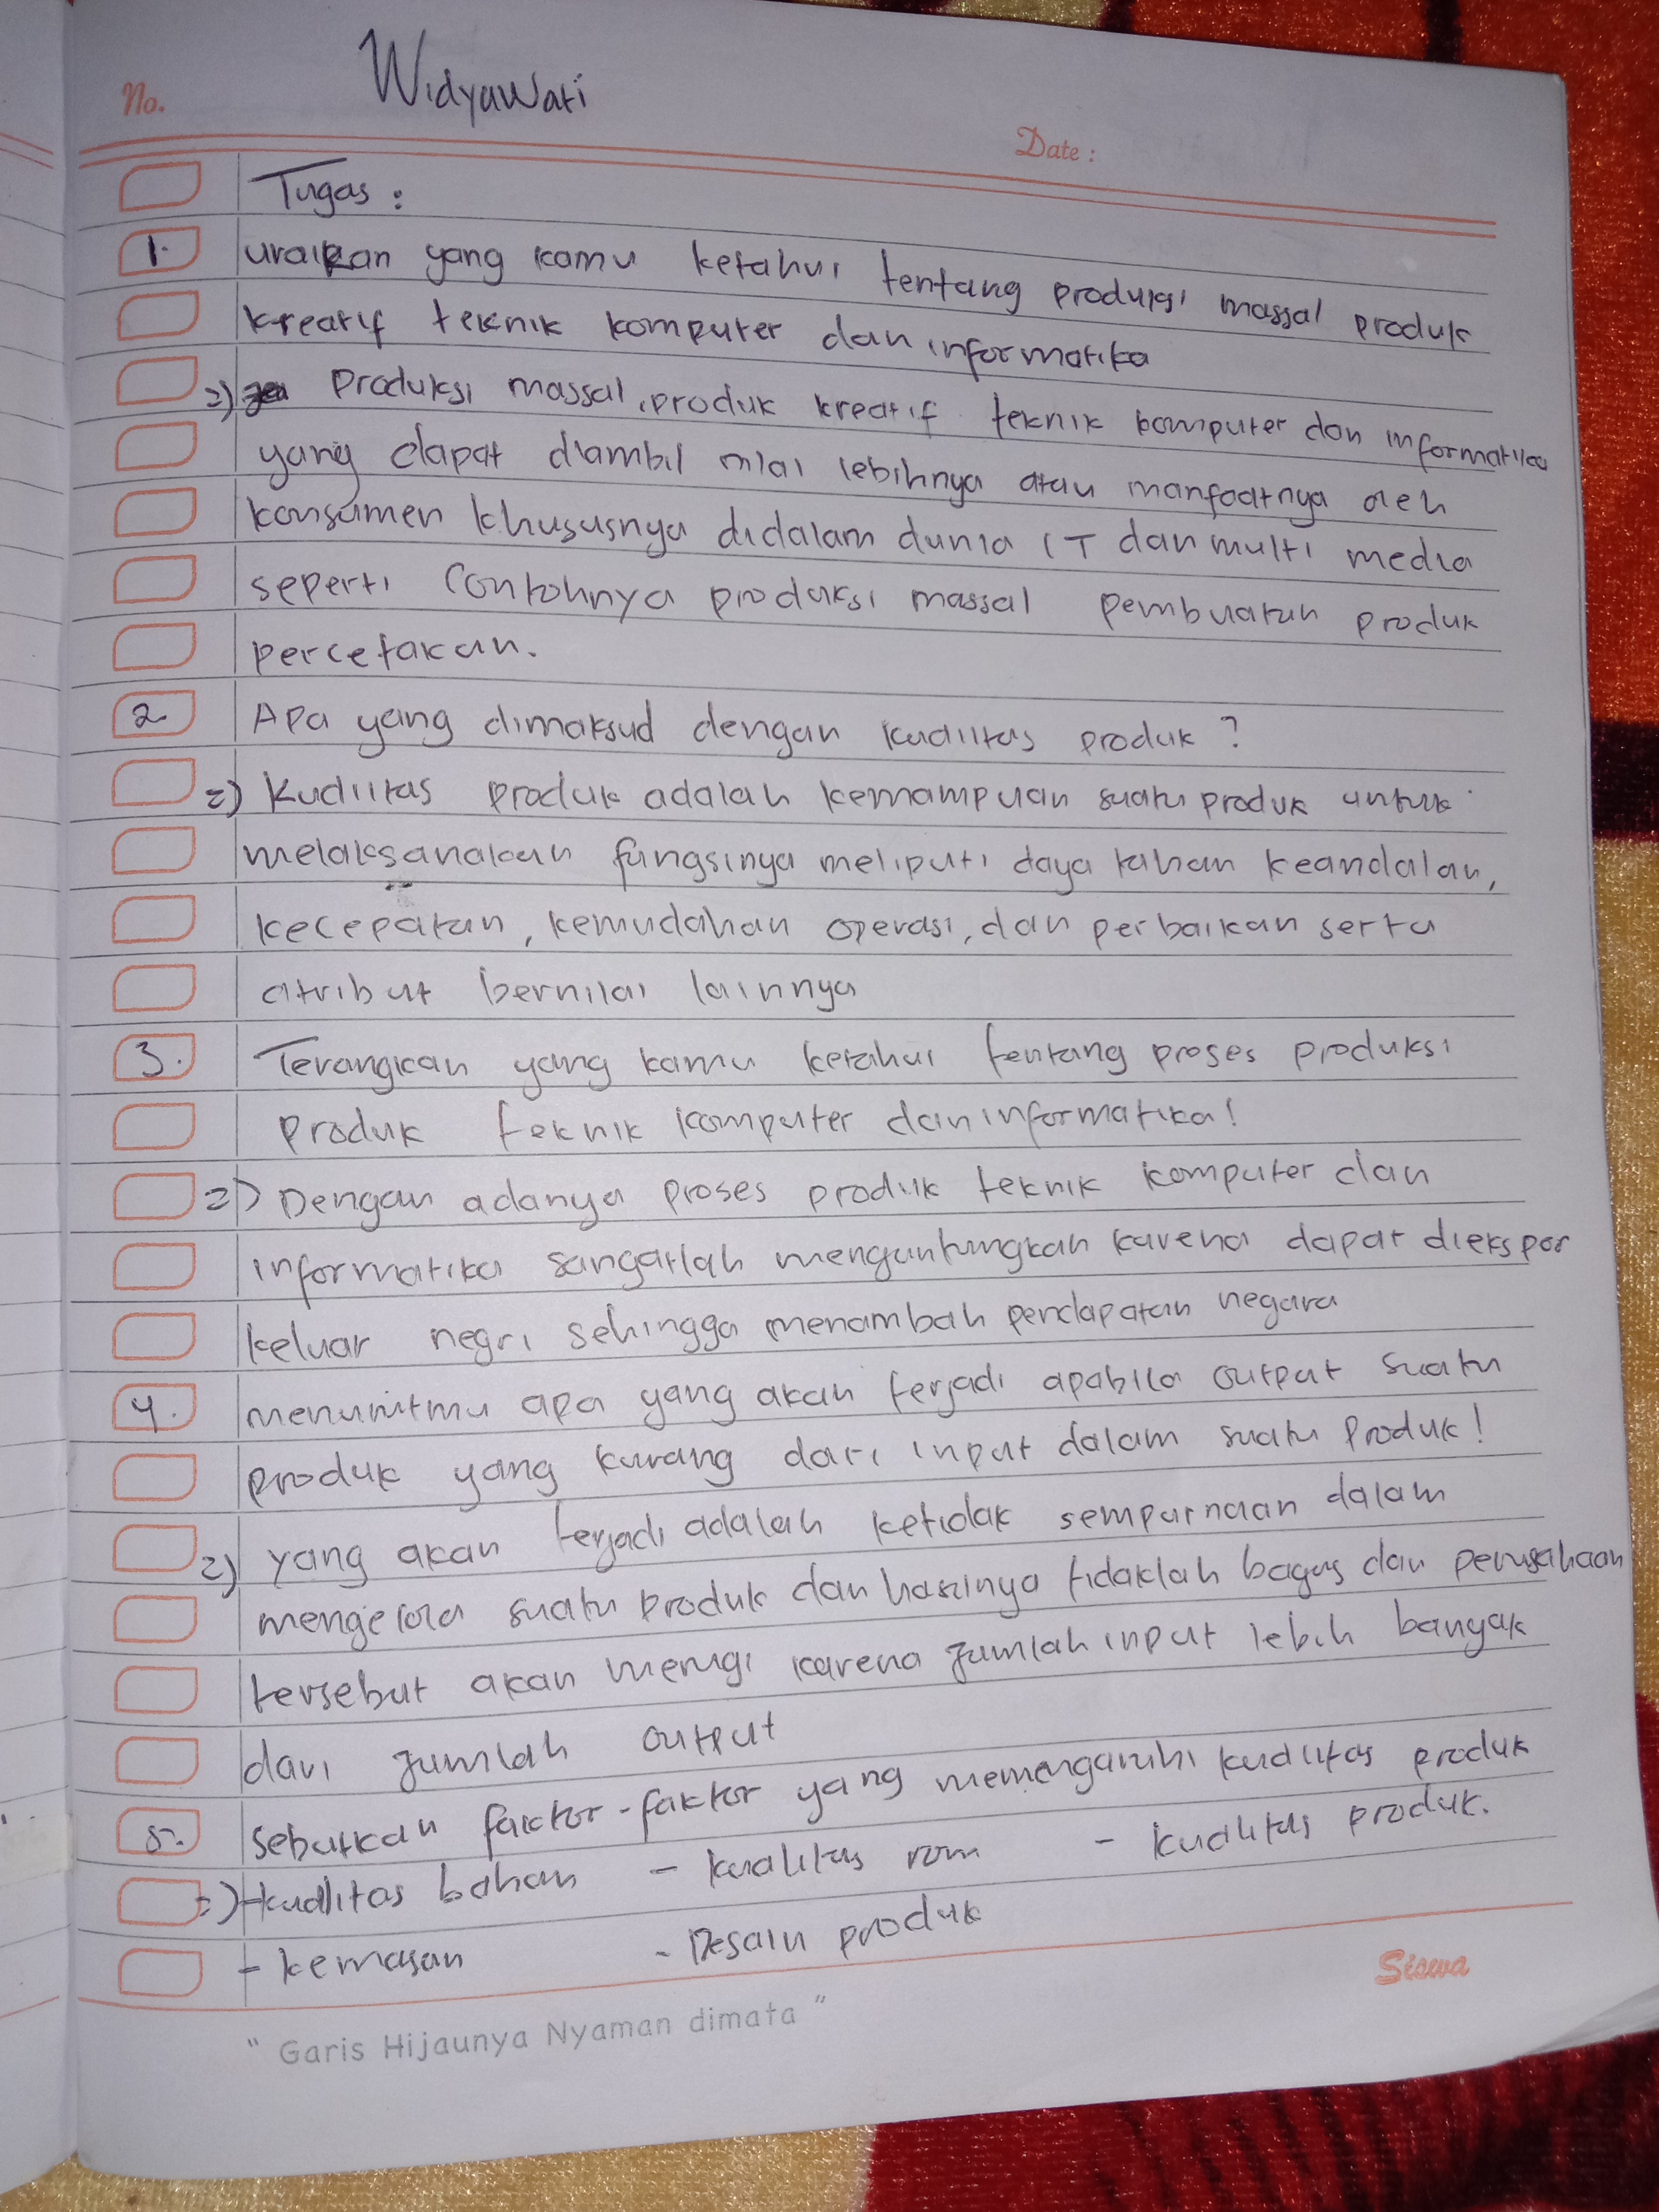 No.
Widyawati
Date :
Tugas :
1. uraikan yang kamu ketahui tentang produksi massal produk
kreatif teknik komputer dan informatika
=) Produksi massal, produk kreatif teknik komputer dan informatika
yang dapat diambil nilai lebihnya atau manfaatnya oleh
konsumen khususnya didalam dunia IT dan multi media
seperti contohnya produksi massal pembuatan produk
percetakan.
2. Apa yang dimaksud dengan kualitas produk ?
=) Kualitas produk adalah kemampuan suatu produk untuk
melaksanakan fungsinya meliputi daya tahan keandalan,
kecepatan, kemudahan operasi, dan perbaikan serta
atribut bernilai lainnya
3. Terangkan yang kamu ketahui tentang proses produksi
produk teknik komputer dan informatika!
=) Dengan adanya proses produk teknik komputer dan
informatika sangatlah menguntungkan karena dapat diekspor
keluar negri sehingga menambah pendapatan negara
4. menurutmu apa yang akan terjadi apabila output suatu
produk yang kurang dari input dalam suatu produk!
=) yang akan terjadi adalah ketidak sempurnaan dalam
mengelola suatu produk dan hasilnya tidaklah bagus dan perusahaan
tersebut akan merugi karena jumlah input lebih banyak
dari jumlah output
5. sebutkan faktor-faktor yang memengaruhi kualitas produk
=) -kualitas bahan - kualitas rom - kualitas produk.
- kemasan - Desain produk
Siswa
" Garis Hijaunya Nyaman dimata "